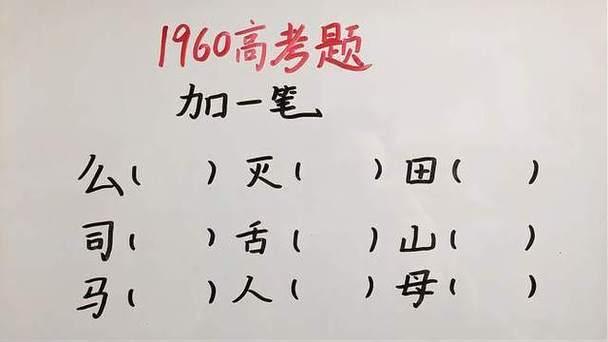 1960高考题
加一笔
么( ) 灭( ) 田( )
司( ) 舌( ) 山( )
马( ) 人( ) 母( )